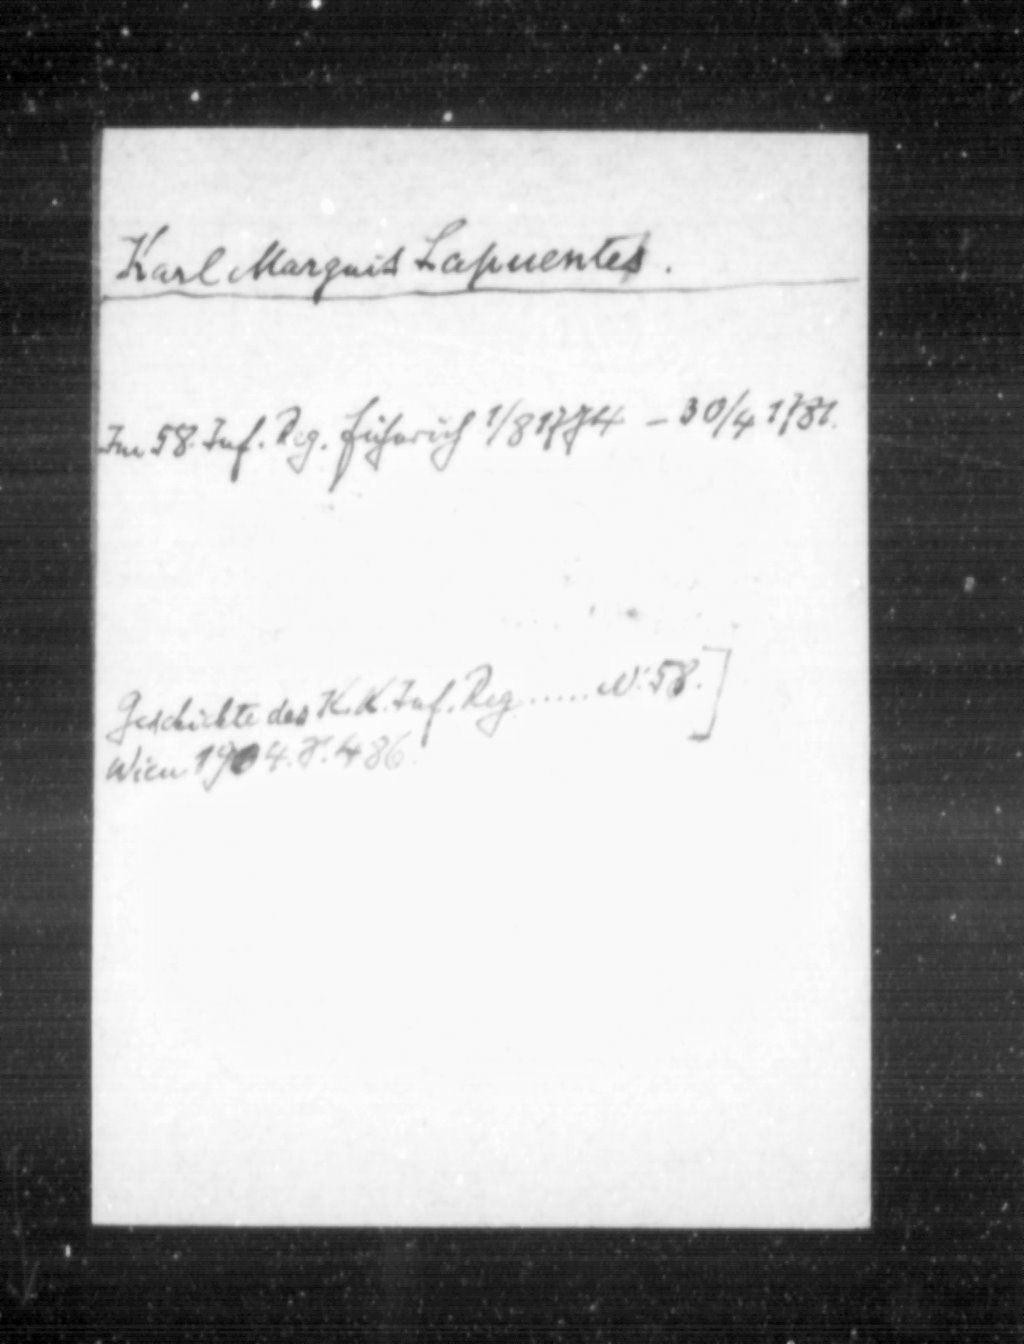 Karl Marquis Lapuentes.
Im 58. Inf. Reg. Fähnrich 1/8 1774 – 30/4 1781.
Geschichte des K. K. Inf. Reg ...... N: 58.]
Wien 1904. S. 486.